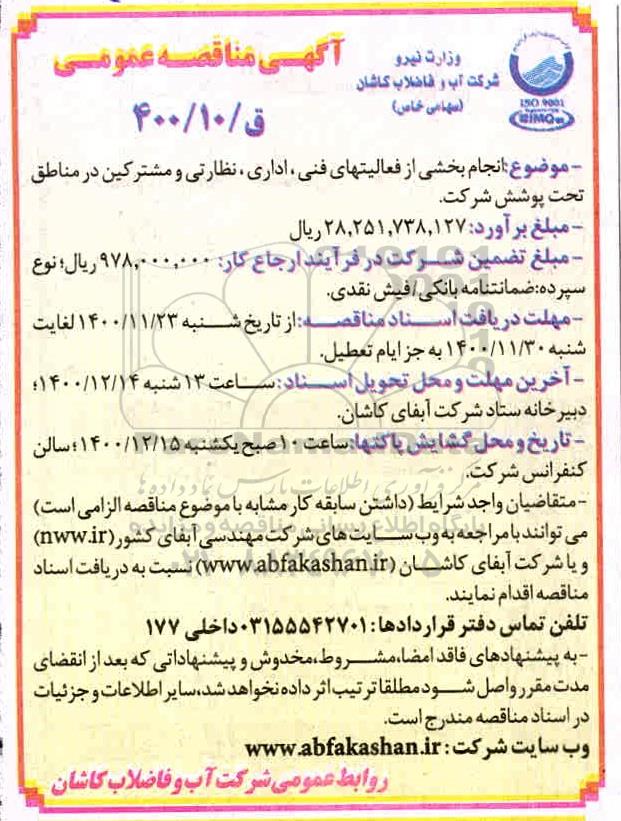 آگهی مناقصه عمومی
وزارت نیرو
شرکت آب و فاضلاب کاشان
(سهامی خاص)
ISO 9001
IMQ
ق/۴۰۰/۱۰
-موضوع:انجام بخشی از فعالیتهای فنی، اداری، نظارتی و مشترکین در مناطق
تحت پوشش شرکت.
-مبلغ برآورد: ۲۸,۲۵۱,۷۳۸,۱۲۷ ریال
-مبلغ تضمین شرکت در فرآیند ارجاع کار: ۹۷۸,۰۰۰,۰۰۰ ریال؛ نوع
سپرده:ضمانتنامه بانکی/فیش نقدی.
-مهلت دریافت اسناد مناقصه:از تاریخ شنبه ۱۴۰۰/۱۱/۲۳ لغایت
شنبه ۱۴۰۰/۱۱/۳۰ به جز ایام تعطیل.
-آخرین مهلت و محل تحویل اسناد: ساعت ۱۳ شنبه ۱۴۰۰/۱۲/۱۴؛
دبیرخانه ستاد شرکت آبفای کاشان.
-تاریخ و محل گشایش پاکتها:ساعت ۱۰ صبح یکشنبه ۱۴۰۰/۱۲/۱۵؛ سالن
کنفرانس شرکت.
-متقاضیان واجد شرایط (داشتن سابقه کار مشابه با موضوع مناقصه الزامی است)
می توانند با مراجعه به وب سایت های شرکت مهندسی آبفای کشور (nww.ir)
و یا شرکت آبفای کاشان (www.abfakashan.ir) نسبت به دریافت اسناد
مناقصه اقدام نمایند.
تلفن تماس دفتر قراردادها: ۰۳۱۵۵۵۴۲۷۰۱ داخلی ۱۷۷
-به پیشنهادهای فاقد امضا، مشروط، مخدوش و پیشنهاداتی که بعد از انقضای
مدت مقرر واصل شود مطلقا ترتیب اثر داده نخواهد شد، سایر اطلاعات و جزئیات
در اسناد مناقصه مندرج است.
وب سایت شرکت: www.abfakashan.ir
روابط عمومی شرکت آب و فاضلاب کاشان